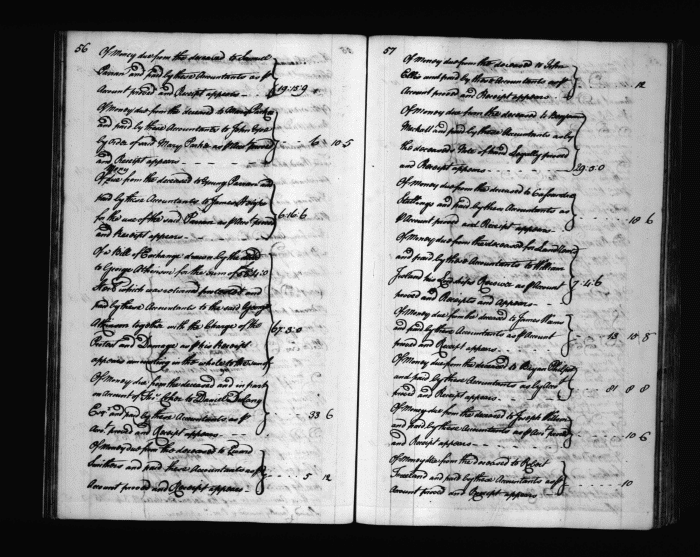 56
Of Money due from the deceased to Samuel
and paid by these Accountants as p
Account proved and Receipt appears - 19.13.9
Of Money due from the deceased to
and paid by these Accountants to John
by Order of said Mary Parker as p Acct proved 6 10 5
and Receipt appears
Of Money due from the deceased to Young Parran and
paid by these Accountants to James
for the use of the said Parran as p Acct proved 6.16.6
and Receipt appears
Of a Bill of Exchange drawn by the deceased
to George Atkinson for the sum of
which was returned protested and
paid by these Accountants to the said George
Atkinson together with the Charge of the
Protest and Damage as p his Receipt 67.3.0
appears amounting in the whole to the sum of
Of Money due from the deceased and in part
on Account of to Daniel
Esqr and paid by these Accountants as p 33 6
Acct proved and Receipt appears
Of Money due from the deceased to
Smithers and paid these Accountants as p 5 12
Account proved and Receipt appears
57
Of Money due from the deceased to John
Ellis and paid by these Accountants as p 12
Account proved and Receipt appears
Of Money due from the deceased to Benjamin
Mackall and paid by these Accountants as by
the deceased Note of hand Legally proved
and Receipt appears 29.5.0
Of Money due from the deceased to
Stallings and paid by these Accountants as 18 6
p Account proved and Receipt appears
Of Money due from the deceased for Land
and paid by these Accountants to William
Ireland his Lordships Receiver as p Account 7.4.6
proved and Receipts and appears
Of Money due from the deceased to James
and paid by these Accountants as p Account 43 15 8
proved and Receipt appears
Of Money due from the deceased to
and paid by these Accountants as by Acct 81 8 8
proved and Receipt appears
Of Money due from the deceased to Joseph
and paid by these Accountants as p Acct proved 10 6
and Receipt appears
Of Money due from the deceased to Robert
Freeland and paid by these Accountants as p 10
Account proved and Receipt appears